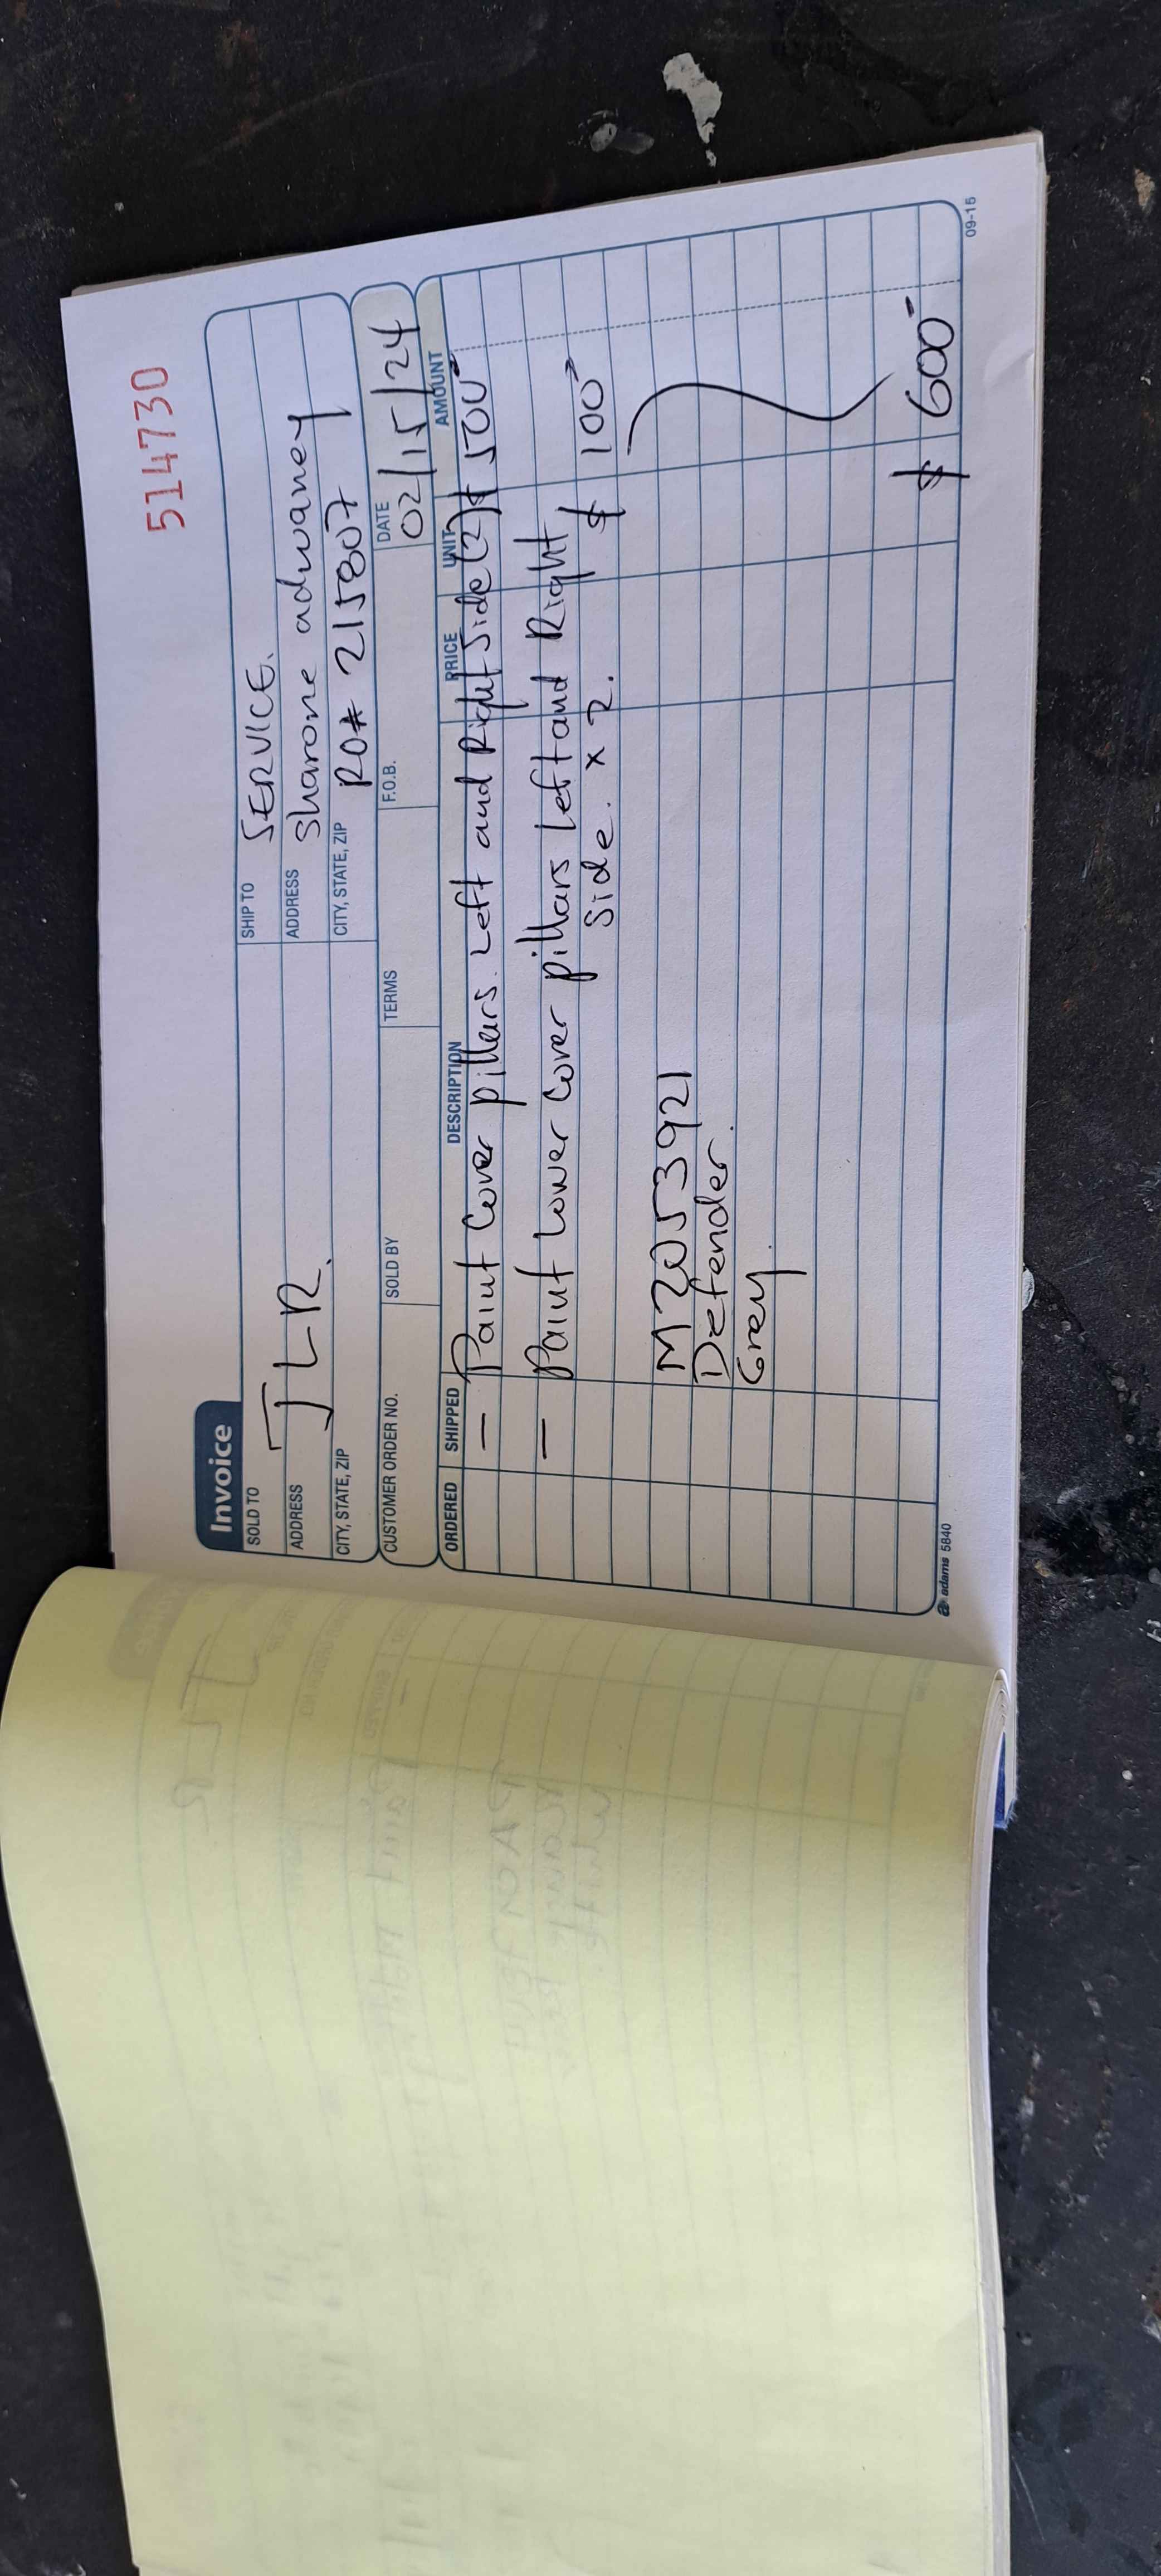 514730
Invoice
SOLD TO
JLR.
ADDRESS
CITY, STATE, ZIP
SHIP TO SERVICE.
ADDRESS Sharone adwaney
CITY, STATE, ZIP RO# 215807
CUSTOMER ORDER NO. SOLD BY TERMS F.O.B. DATE 02/15/24
ORDERED SHIPPED DESCRIPTION PRICE UNIT AMOUNT
— Paint Cover pillars. Left and Right Side (2) $ 500-
— Paint Lower Cover pillars Left and Right
Side. x 2. $ 100-
M2053921
Defender.
Grey.
$ 600-
adams 5840
09-15